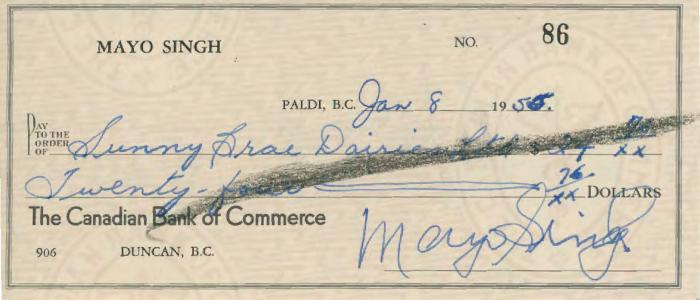 MAYO SINGH
NO. 86
PALDI, B.C. Jan 8 19 55.
PAY TO THE ORDER OF Sunny Brae Dairies Ltd $ 24 76/xx
Twenty-four 76/xx DOLLARS
The Canadian Bank of Commerce
906 DUNCAN, B.C.
Mayo Singh